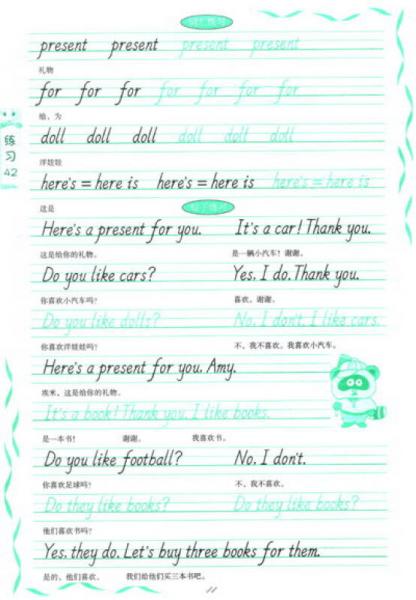 词汇练习
present present present present
礼物
for for for for for for
给、为
doll doll doll doll doll doll
练习 42
洋娃娃
here's = here is here's = here is here's = here is
这是
句子练习
Here's a present for you. It's a car! Thank you.
这是给你的礼物。 是一辆小汽车！谢谢。
Do you like cars? Yes, I do. Thank you.
你喜欢小汽车吗？ 喜欢。谢谢。
Do you like dolls? No, I don't. I like cars.
你喜欢洋娃娃吗？ 不，我不喜欢。我喜欢小汽车。
Here's a present for you, Amy.
埃米，这是给你的礼物。
It's a book! Thank you. I like books.
是一本书！ 谢谢。 我喜欢书。
Do you like football? No, I don't.
你喜欢足球吗？ 不，我不喜欢。
Do they like books? Do they like books?
他们喜欢书吗？
Yes, they do. Let's buy three books for them.
是的，他们喜欢。 我们给他们买三本书吧。